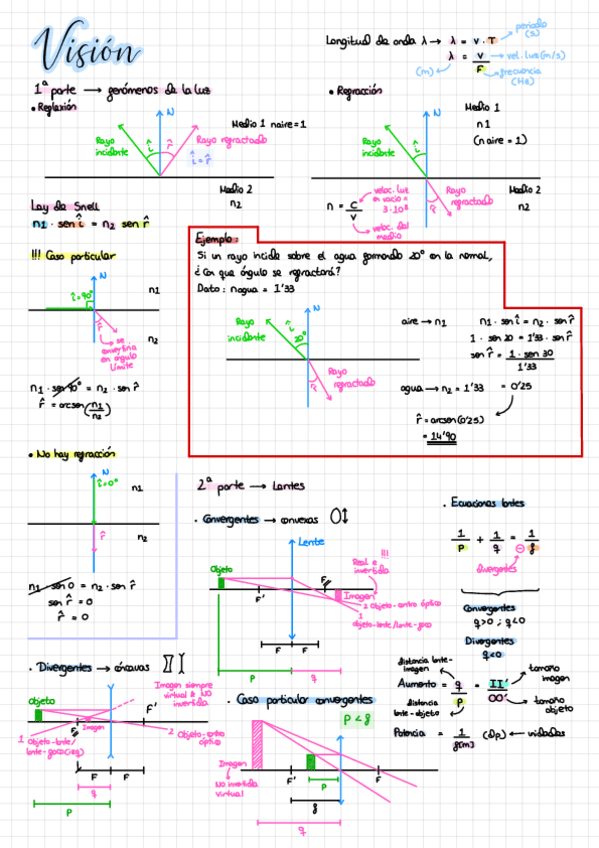 Visión
Longitud de onda λ → λ = v · T
periodo
(s)
λ = v/F
vel. luz (m/s)
(m)
frecuencia
(Hz)
1ª parte → fenómenos de la luz
• Reflexión
N
Medio 1 naire = 1
Rayo
incidente
î
r̂
Rayo refractado
î = r̂
Medio 2
n2
• Refracción
N
Medio 1
n1
(n aire = 1)
Rayo
incidente
î
r̂
Rayo
refractado
Medio 2
n2
n = c/v
veloc. luz
en vacío =
3·10⁸
veloc. del
medio
Ley de Snell
n1 · sen î = n2 sen r̂
!!! Caso particular
N
î = 90°
n1
r̂
n2
se
convertiría
en ángulo
límite
n1 · sen 90° = n2 · sen r̂
r̂ = arcsen (n1/n2)
Ejemplo:
Si un rayo incide sobre el agua formando 20° en la normal,
¿Con que ángulo se refractará?
Dato: nagua = 1'33
N
Rayo
incidente
î
20°
r̂
Rayo
refractado
aire → n1
n1 · sen î = n2 · sen r̂
1 · sen 20 = 1'33 · sen r̂
sen r̂ = 1 · sen 30 / 1'33
agua → n2 = 1'33
= 0'25
r̂ = arcsen (0'25)
= 14'90
• No hay refracción
N
î = 0°
n1
r̂
n2
n1 · sen 0 = n2 · sen r̂
sen r̂ = 0
r̂ = 0
2ª parte → Lentes
• Convergentes → convexas
Lente
Objeto
F'
F
!!!
Real e
invertida
Imagen
2 Objeto-centro óptico
1
objeto-lente/lente-foco
F F
p q
• Ecuaciones lentes
1/p + 1/q = 1/f
divergentes
Convergentes
q>0 ; q<0
Divergentes
q<0
distancia lente-
imagen
Aumento = q/p = II'/OO'
tamaño
imagen
distancia
lente-objeto
tamaño
objeto
Potencia = 1/f(m) (Dp) ← unidades
• Divergentes → cóncavas
Imagen siempre
virtual & NO
invertida
Objeto
F'
F
Imagen
1 Objeto-lente/
lente-foco(izq)
2 Objeto-centro
óptico
F F
q
p
• Caso particular convergentes
p < f
Imagen
No invertida
virtual
F'
F
p
f
q